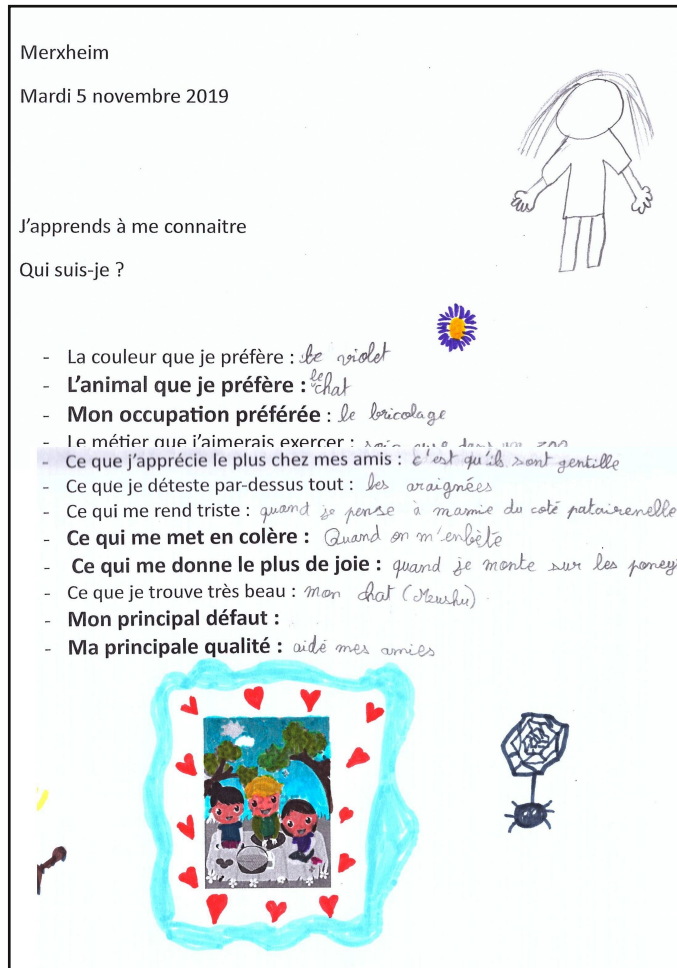 Merxheim
Mardi 5 novembre 2019
J'apprends à me connaitre
Qui suis-je ?
- La couleur que je préfère : le violet
- L'animal que je préfère : le chat
- Mon occupation préférée : le bricolage
- Le métier que j'aimerais exercer : dans un zoo
- Ce que j'apprécie le plus chez mes amis : c'est qu'ils sont gentille
- Ce que je déteste par-dessus tout : les araignées
- Ce qui me rend triste : quand je pense à mamie du coté patairenelle
- Ce qui me met en colère : Quand on m'enbète
- Ce qui me donne le plus de joie : quand je monte sur les poney
- Ce que je trouve très beau : mon chat
- Mon principal défaut :
- Ma principale qualité : aidé mes amies